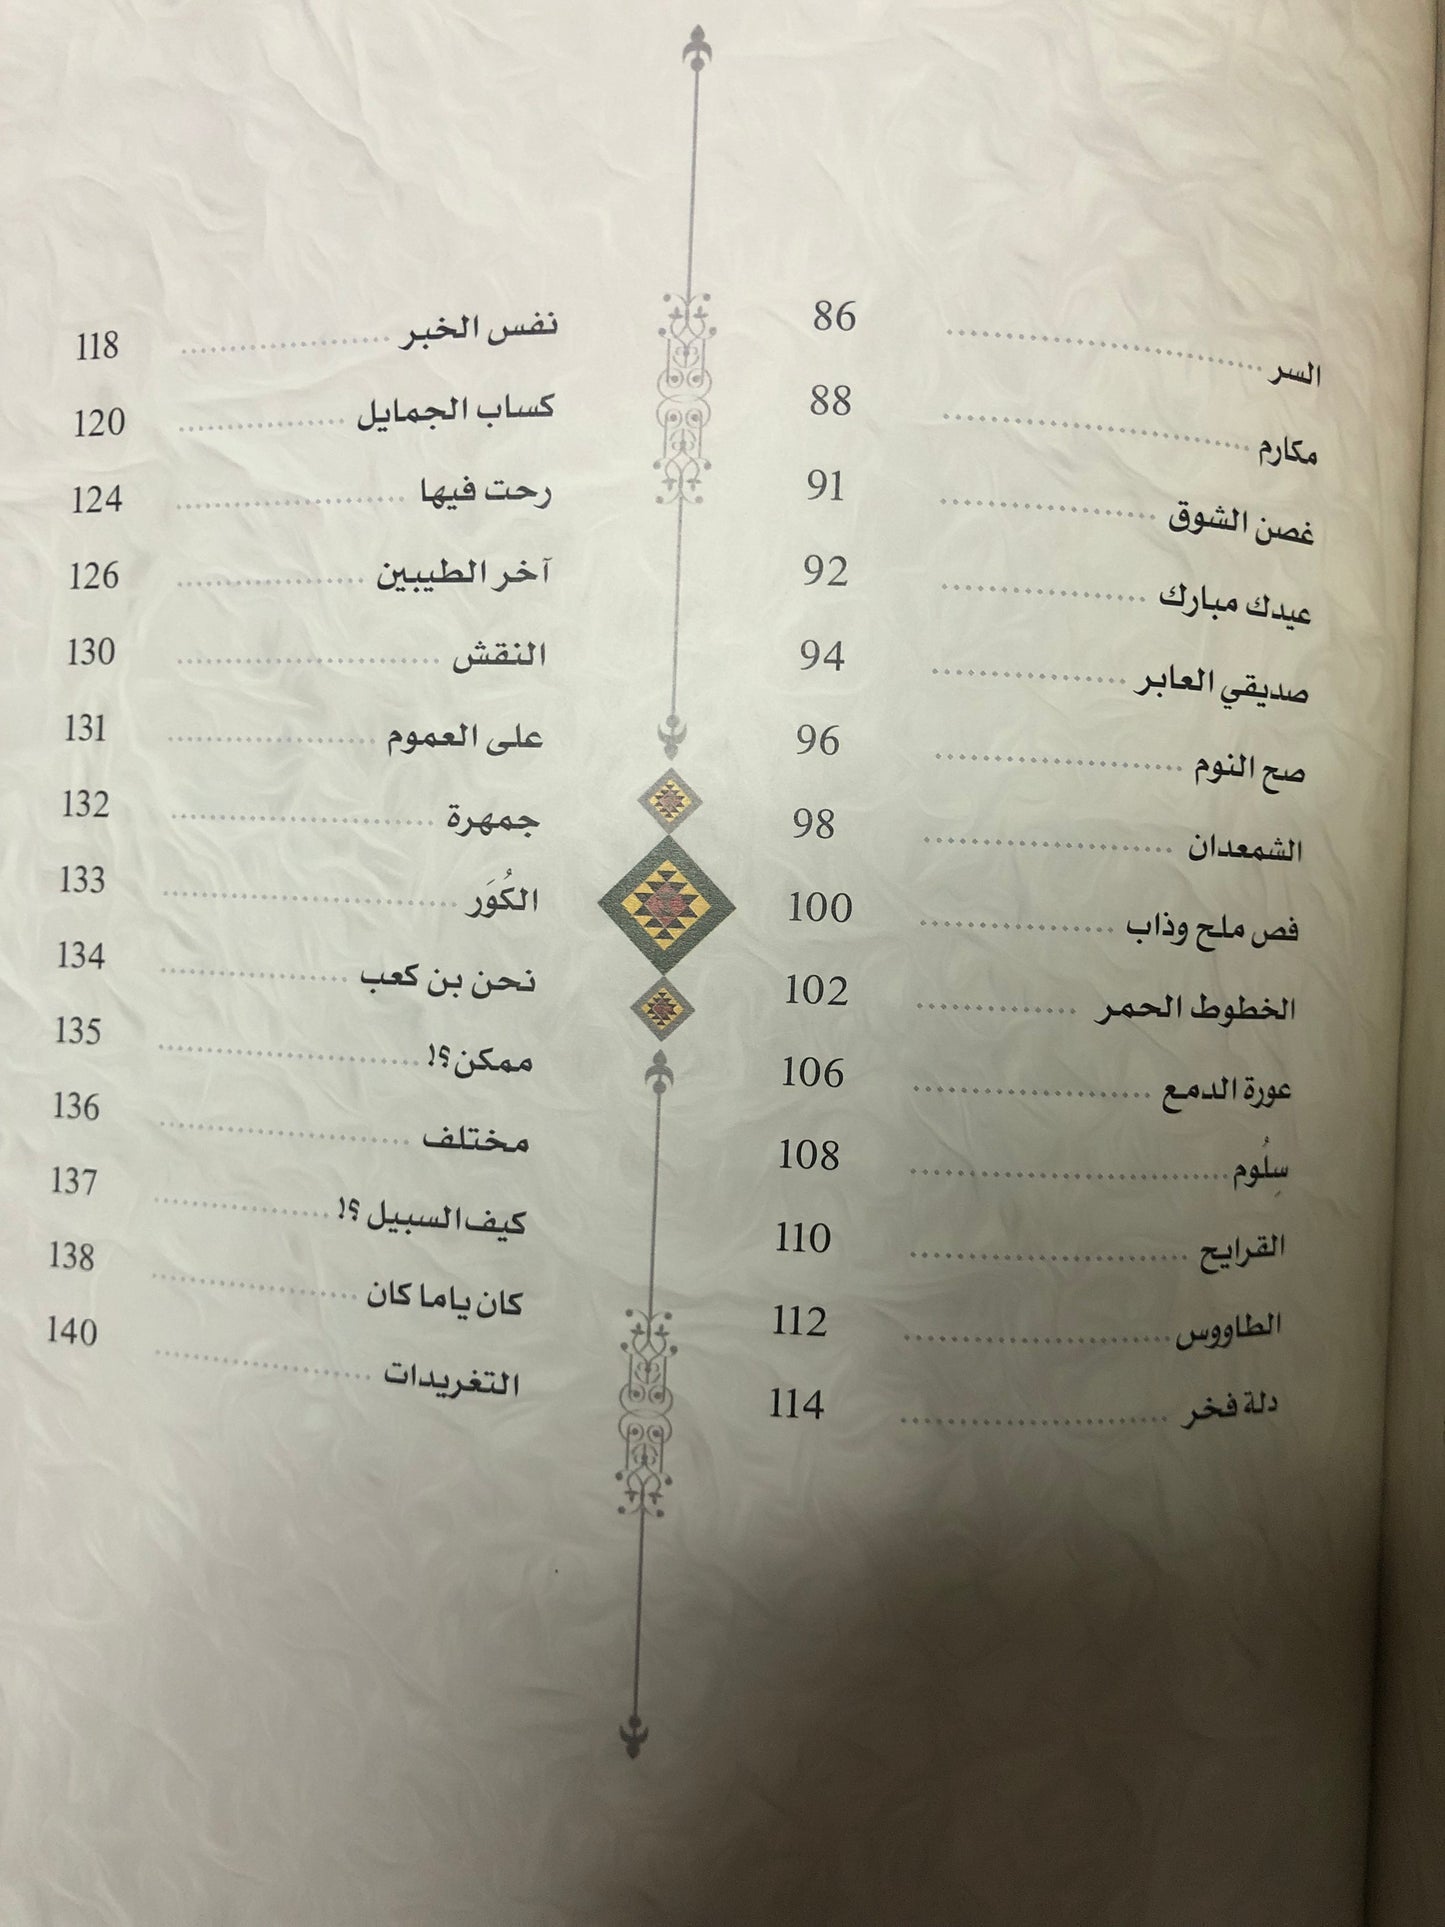 السر ........ 86
مكارم ........ 88
غصن الشوق ........ 91
عيدك مبارك ........ 92
صديقي العابر ........ 94
صح النوم ........ 96
الشمعدان ........ 98
فص ملح وذاب ........ 100
الخطوط الحمر ........ 102
عورة الدمع ........ 106
سِلُوم ........ 108
القرايح ........ 110
الطاووس ........ 112
دلة فخر ........ 114
نفس الخبر ........ 118
كساب الجمايل ........ 120
رحت فيها ........ 124
آخر الطيبين ........ 126
النقش ........ 130
على العموم ........ 131
جمهرة ........ 132
الكُوَر ........ 133
نحن بن كعب ........ 134
ممكن؟! ........ 135
مختلف ........ 136
كيف السبيل ؟! ........ 137
كان ياما كان ........ 138
التغريدات ........ 140